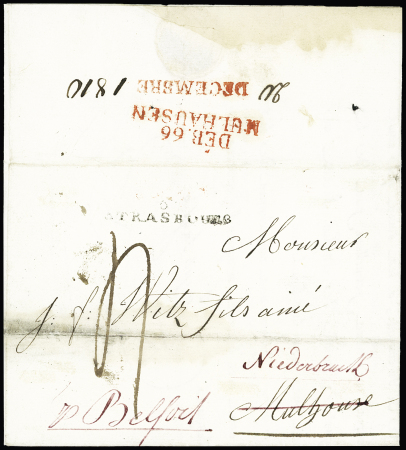 DÉB. 66
MULHAUSEN
20 DECEMBRE 1810
STRASBOURG
Monsieur
J. J. Witz fils ainé
Niederbruck
p Belfort Mulhouse